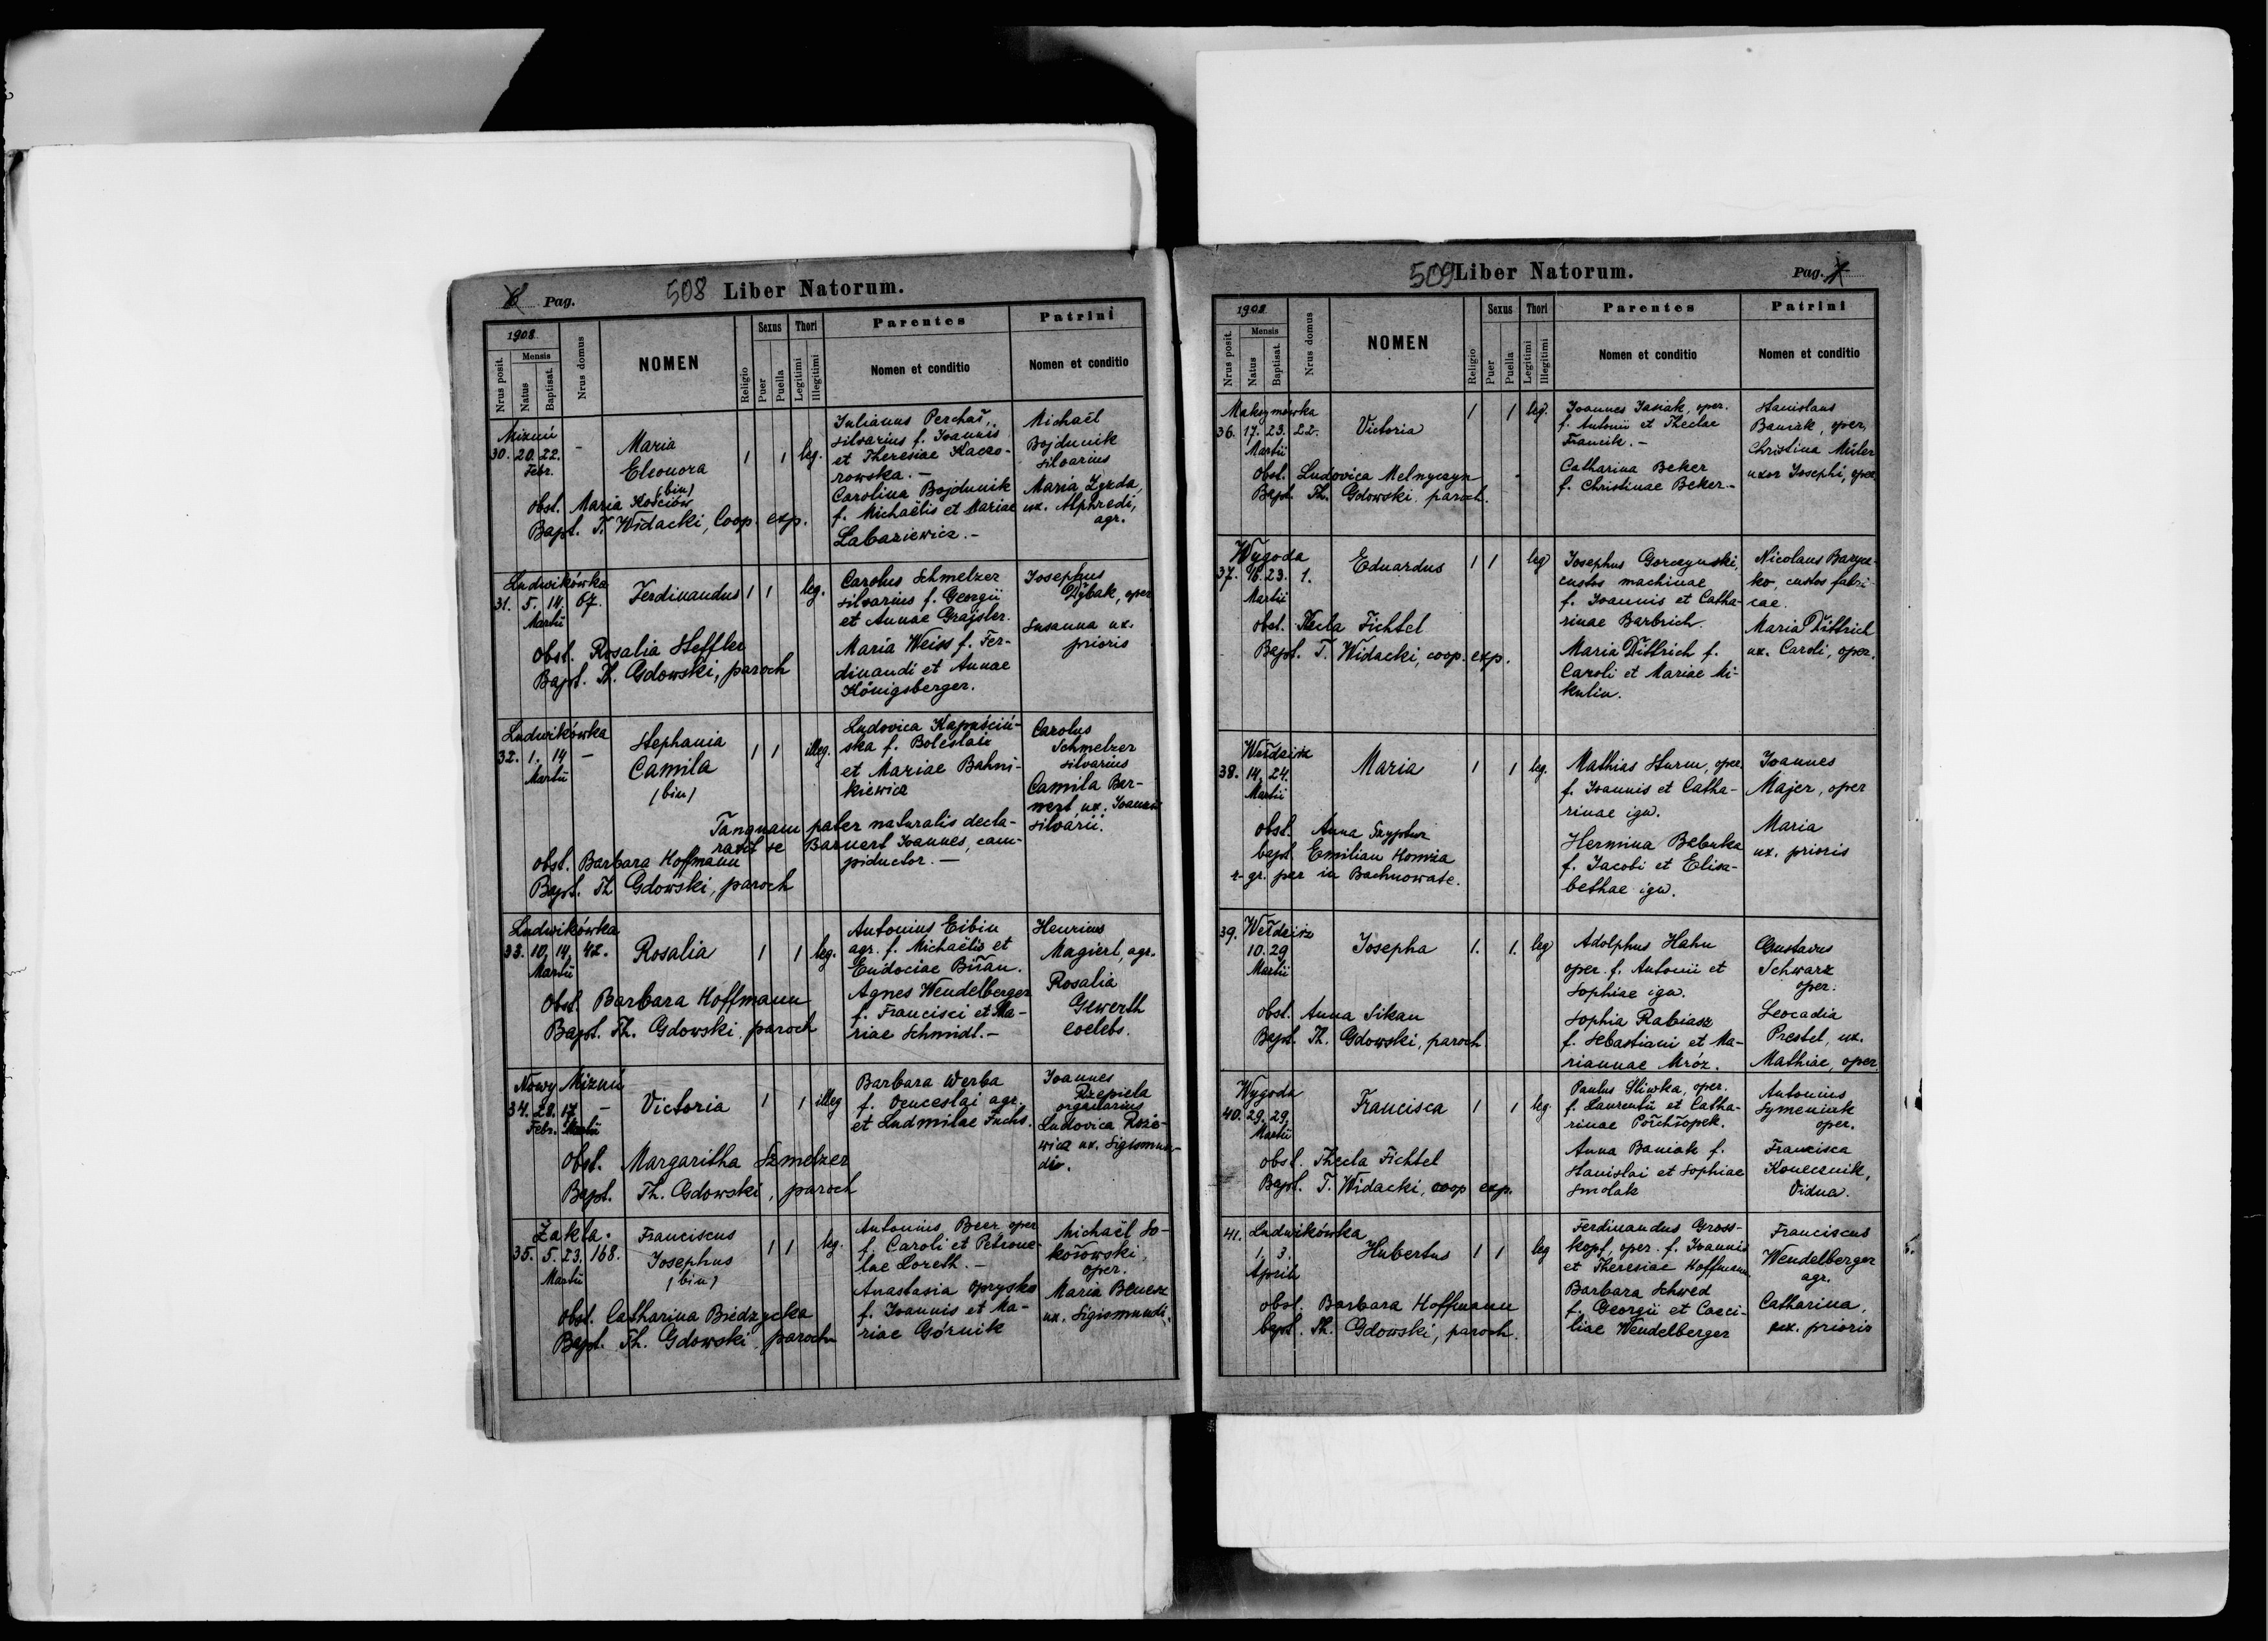 6 Pag. 508 Liber Natorum.
1908
Nrus posit.
Mensis
Natus
Baptisat.
Nrus domus
NOMEN
Religio
Sexus
Puer
Puella
Thori
Legitimi
Illegitimi
Parentes
Nomen et conditio
Patrini
Nomen et conditio
Mizuń
30. 20. 22. -
Febr.
Maria
Eleonora
(bin)
1 1 leg.
obst. Maria Kościów
Bapt. T. Widacki, Coop. exp.
Julianus Perchał,
silvarius f. Joannis
et Theresiae Kaczo-
rowska. -
Carolina Bojdunik
f. Michaëlis et Mariae
Labaziewicz. -
Michaël
Bojdunik
silvarius
Maria Zyzda,
ux. Alphredi,
agr.
Ludwikówka
31. 5. 14. 67.
Martii
Ferdinandus 1 1 leg.
obst. Rosalia Steffler
Bapt. Th. Gdowski, paroch
Carolus Schmelzer
silvarius f. Georgii
et Annae Grajsler.
Maria Weiss f. Fer-
dinandi et Annae
Königsberger.
Josephus
Dybak, oper
Susanna ux.
prioris
Ludwikówka
32. 1. 14 -
Martii
Stephania
Camila
(bin)
1 1 illeg.
Ludovica Kapuściń-
ska f. Boleslai
et Mariae Bahni-
kiewicz
Tanquam pater naturalis decla-
ravit se Barnert Joannes, cam-
piductor. -
obst. Barbara Hoffmann
Bapt. Th Gdowski, paroch
Carolus
Schmelzer
silvarius
Camila Bar-
nert ux. Joannis
silvarii.
Ludwikówka
33. 10. 14. 42.
Martii
Rosalia 1 1 leg.
Obst. Barbara Hoffmann
Bapt. Th. Gdowski, paroch
Antonius Eibin
agr. f. Michaëlis et
Eudociae Biłan.
Agnes Wendelberger
f. Francisci et Ma-
riae Schmidt. -
Henrius
Magierl, agr.
Rosalia
Gewerth
coelebs.
Nowy Mizuń
34. 28. 17. -
Febr. Martii
Victoria 1 1 illeg
Obst. Margaritha Szmelzer
Bapt. Th. Gdowski, paroch
Barbara Werba
f. Venceslai agr.
et Ludmilae Fuchs.
Joannes
Rzepiela
organarius
Ludovica Roże-
wicz ux. Sigismun-
di.
Zakla.
35. 5. 23. 168.
Martii
Franciscus
Josephus
(bin)
1 1 leg.
obst. Catharina Biedzycka
Bapt. Th. Gdowski, paroch
Antonius Beer, oper
f. Caroli et Petrone-
lae Loreth. -
Anastasia Opryska
f. Joannis et Ma-
riae Górnik
Michaël So-
kołowski,
oper.
Maria Benesz
ux. Sigismundi.
509 Liber Natorum. Pag. 7
1908
Nrus posit.
Mensis
Natus
Baptisat.
Nrus domus
NOMEN
Religio
Sexus
Puer
Puella
Thori
Legitimi
Illegitimi
Parentes
Nomen et conditio
Patrini
Nomen et conditio
Maksymówka
36. 17. 23. 22.
Martii
Victoria 1 1 leg.
Obst. Ludovica Melnyczyn
Bapt. Th. Gdowski, paroch.
Joannes Jasiak, oper.
f. Antonii et Theclae
Francik. -
Catharina Beker
f. Christinae Beker. -
Stanislaus
Baniak, oper,
Christina Müler
uxor Josephi, oper
Wygoda
37. 16. 23. 1.
Martii
Eduardus 1 1 leg
obst. Thecla Fichtel
Bapt. T. Widacki, coop. exp.
Josephus Gorczynski,
custos machinae
f. Joannis et Catha-
rinae Barbrich.
Maria Dittrich f.
Caroli et Mariae Mi-
kulin.
Nicolaus Barycz-
ko, custos fabri-
cae.
Maria Dittrich
ux. Caroli, oper.
Wełdzirz
38. 14. 24.
Martii
Maria 1 1 leg.
obst. Anna Szyptur
bapt. Emilian Komza
r-gr. par in Bachnowate.
Mathias Sturm, oper.
f. Joannis et Catha-
rinae ign.
Hermina Beberka
f. Jacobi et Elisa-
bethae ign.
Joannes
Majer, oper
Maria
ux. prioris
39. Wełdzirz
10. 29
Martii
Josepha 1. 1. leg
obst. Anna Sikan
Bapt. Th. Gdowski, paroch
Adolphus Hahn
oper. f. Antonii et
Sophiae ign.
Sophia Rabiasz
f. Sebastiani et Ma-
riannae Mróz.
Gustavus
Schwarz
oper.
Leocadia
Prestel, ux.
Mathiae, oper.
Wygoda
40. 29. 29.
Martii
Francisca 1 1 leg.
obst. Thecla Fichtel
Bapt. T. Widacki, coop exp.
Paulus Śliwka, oper.
f. Laurentii et Catha-
rinae Porchłopek.
Anna Baniak f.
Stanislai et Sophiae
Smolak
Antonius
Symeniuk
oper.
Francisca
Konecznik,
Vidua.
41. Ludwikówka
1. 3.
Aprili
Hubertus 1 1 leg
obst. Barbara Hoffmann
bapt. Th. Gdowski, paroch.
Ferdinandus Gross-
kopf, oper. f. Joannis
et Theresiae Hoffmann
Barbara Schwed
f. Georgii et Caeci-
liae Wendelberger
Franciscus
Wendelberger
agr.
Catharina,
ux. prioris